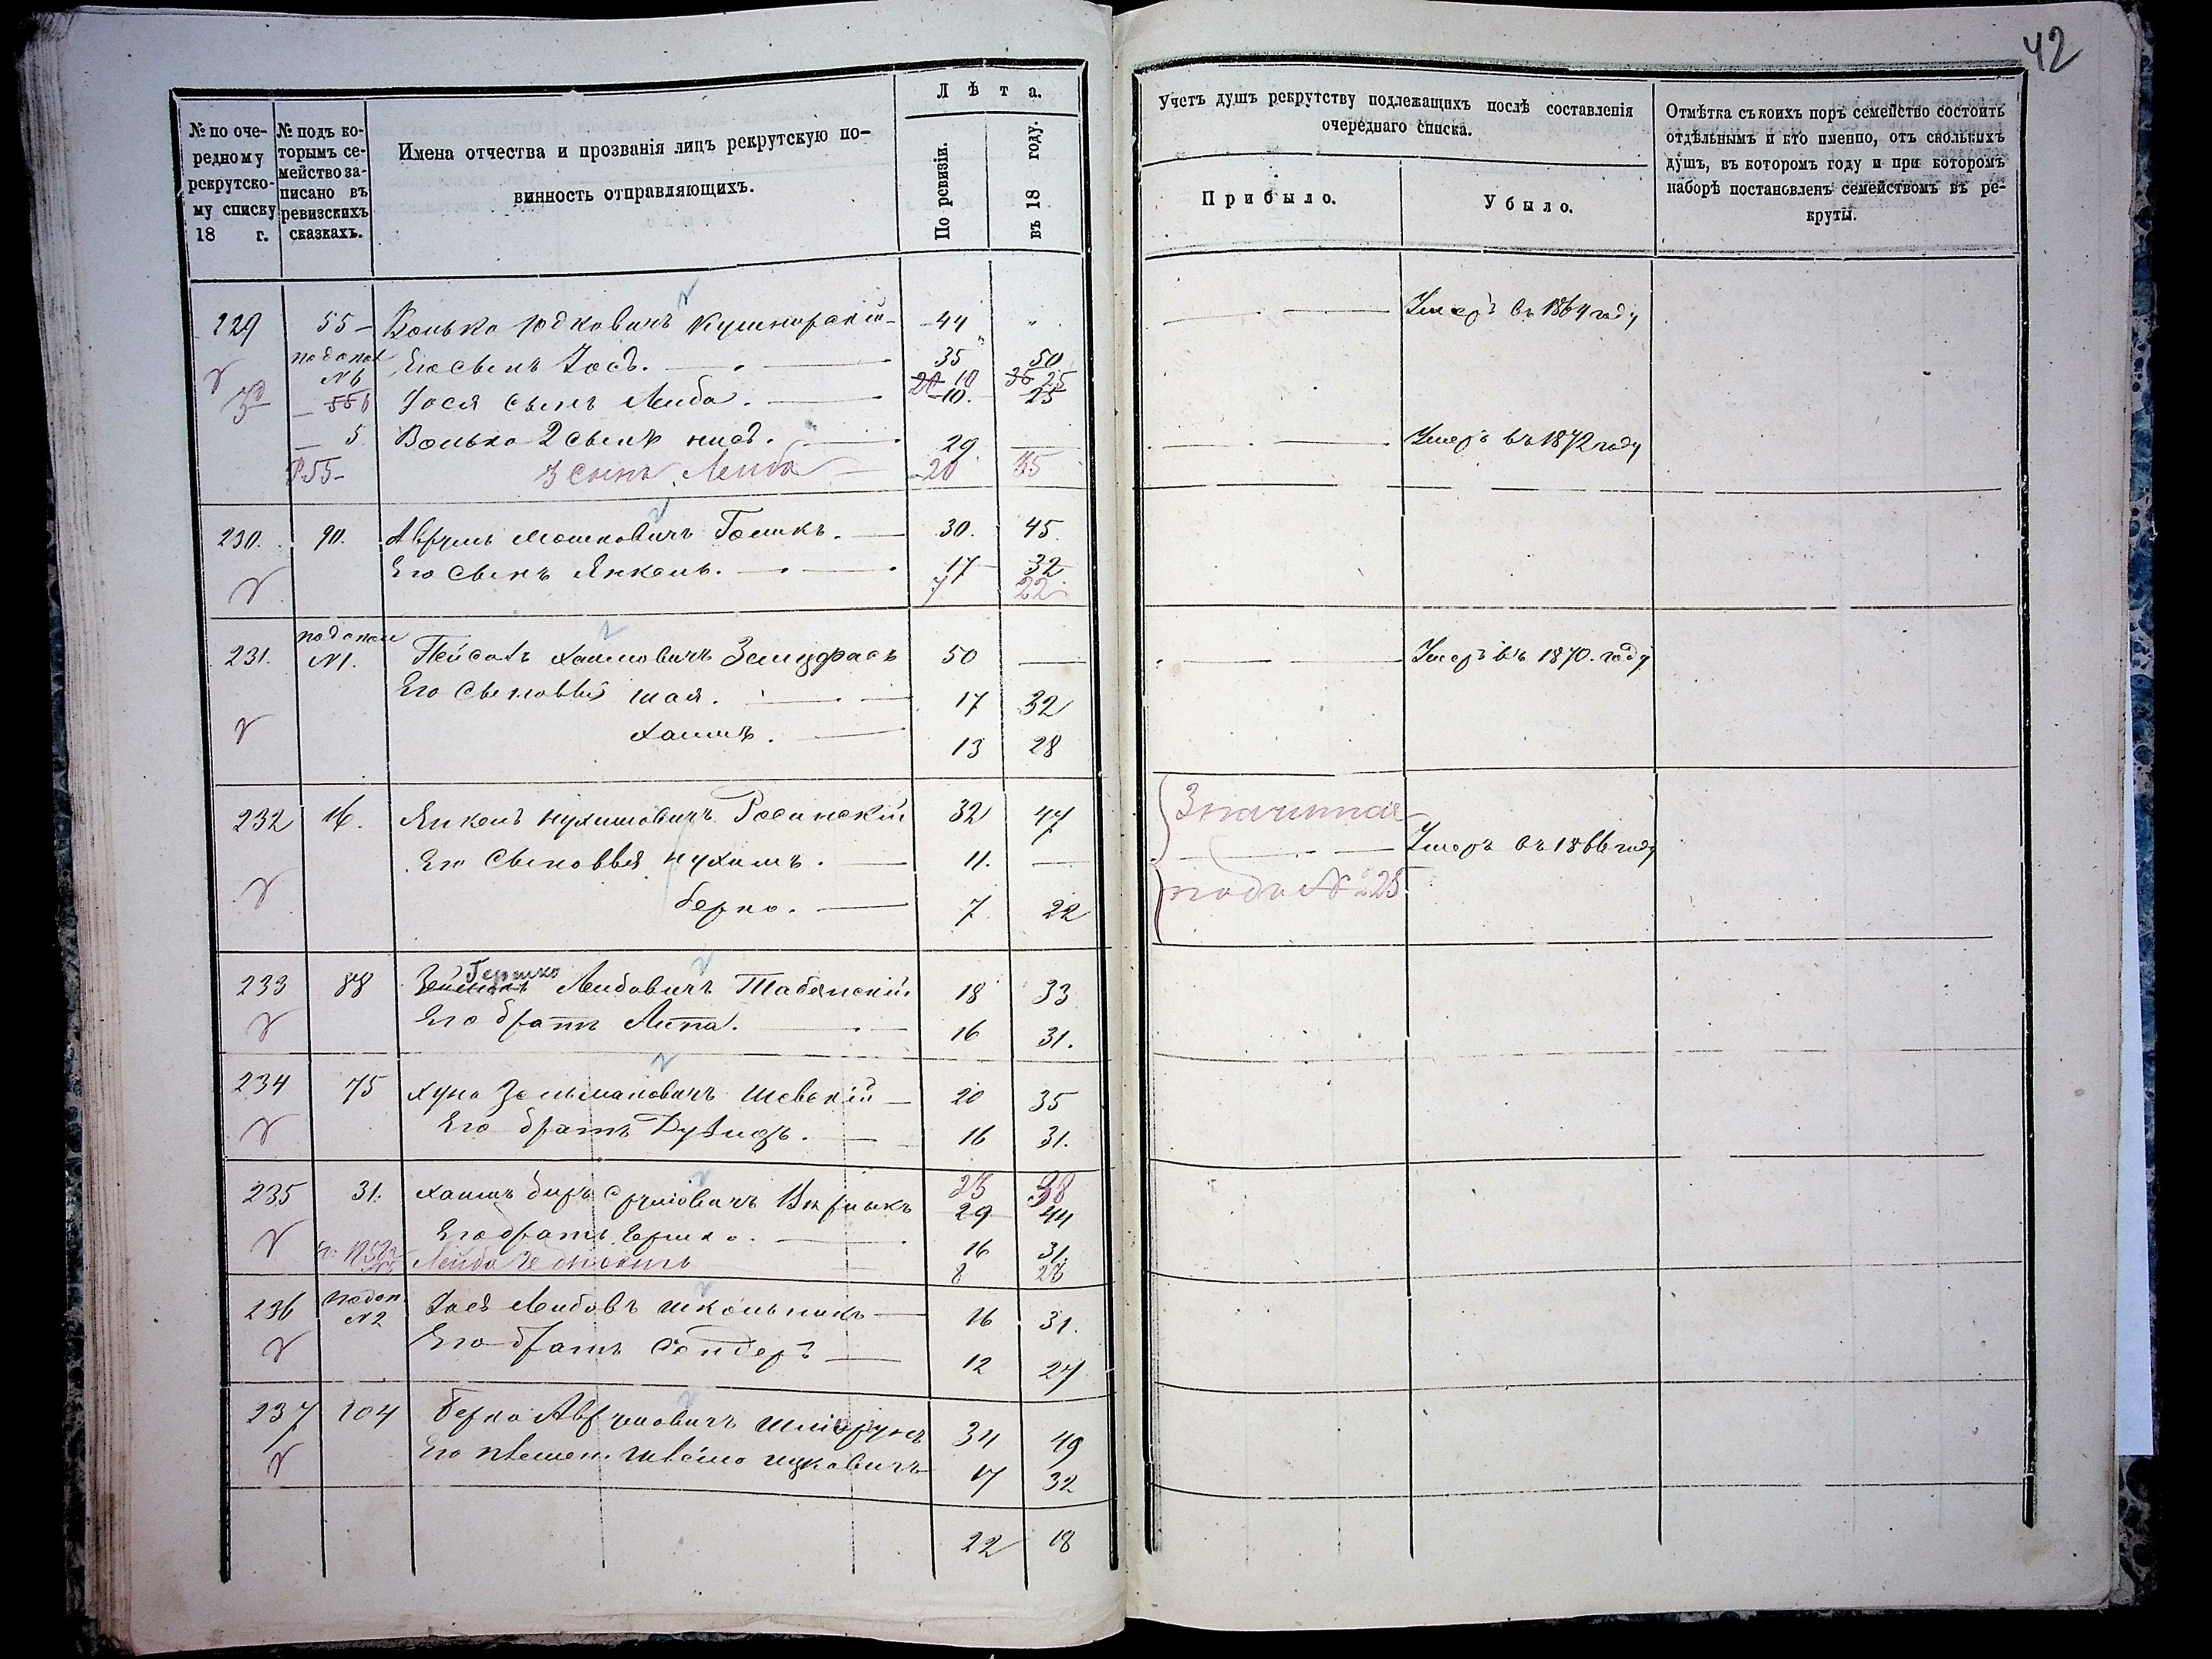 42
№ по оче-
редному
рекрутско-
му списку
18 г.
№ подъ ко-
торымъ се-
мейство за-
писано въ
ревизскихъ
сказкахъ.
Имена отчества и прозванія лицъ рекрутскую по-
винность отправляющихъ.
Лѣта.
По ревизіи.
въ 18 году.
Учетъ душъ рекрутству подлежащихъ послѣ составленія
очереднаго списка.
Прибыло.
Убыло.
Отмѣтка съ коихъ поръ семейство состоитъ
отдѣльнымъ и кто именно, отъ сколькихъ
душъ, въ которомъ году и при которомъ
наборѣ постановленъ семействомъ въ ре-
круты.
229 55 Волько Юдковичъ Кушнирскій 44 Умеръ въ 1864 году
№ 6 Его сынъ Іось. 35 50
Іося сынъ Лейба. 10. 25
5 Волька 2 сынъ 29 Умеръ въ 1872 году
55 3 сынъ Лейба 20 35
230. 90. Аврумъ Мошковичъ Гомикъ. 30. 45
Его сынъ Янкель. 17 32
7 22
231. № 1. Пейсахъ Хаимовичъ 50 Умеръ въ 1870. году
Его сыновья Шая. 17 32
Хаимъ. 13 28
232 16. Янкель Нухимовичъ Росинскій 32 47 Значится
Его сыновья Нухимъ. 11. Умеръ въ 1866 году
Берко. 7 22 подъ № 225
Гершко
233 88 Лейбовичъ Табянскій 18 33
Его братъ Липа. 16 31.
234 75 Хуна Зельмановичъ Шевскій 20 35
Его братъ Дувидъ. 16 31.
23 38
235 31. Хаимъ Беръ Срулiовичъ 29 44
Его братъ Гершко. 16 31.
Лейба 8 23
236 № 2 Іося Лейбовъ Школьникъ 16 31.
Его братъ Сендеръ 12 27
237 104 Берко Аврумовичъ 34 49
Его племен. Ицковичъ 17 32
22 18